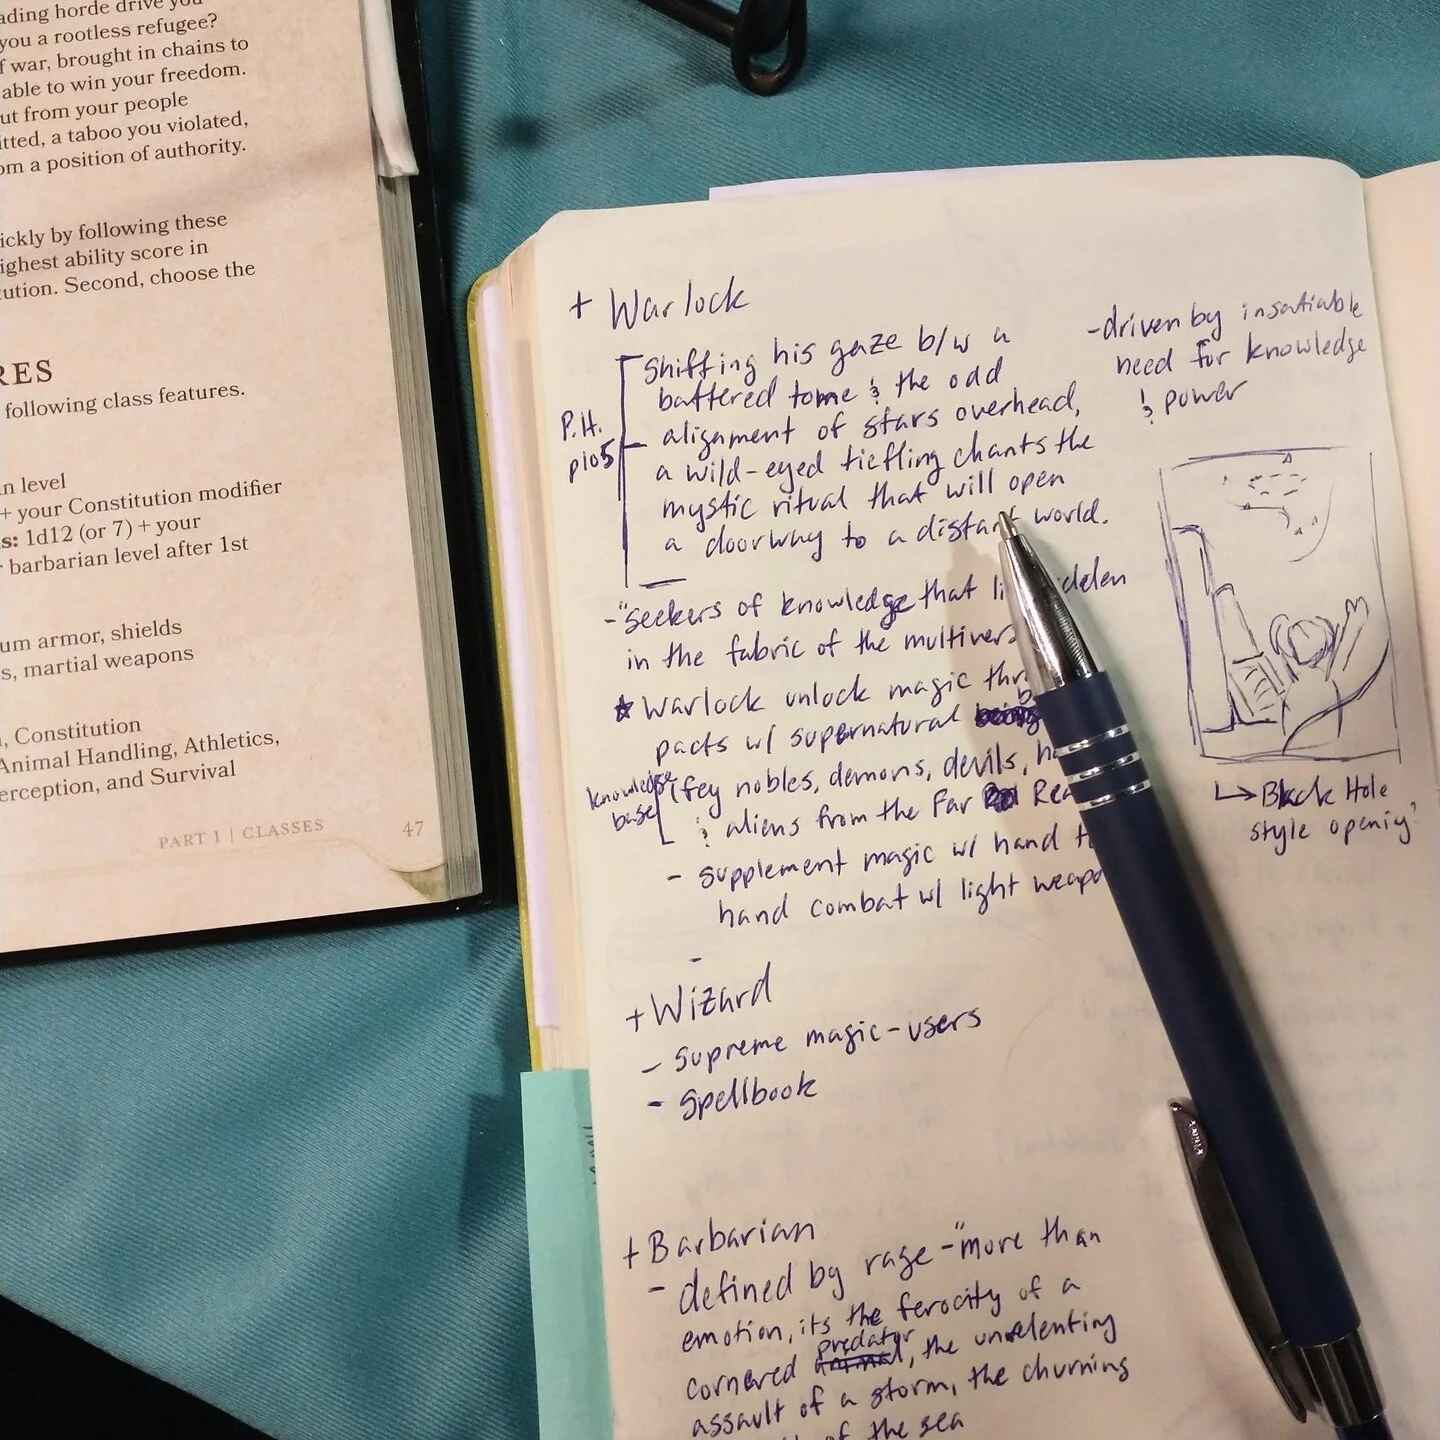 ading horde drive you
you a rootless refugee?
f war, brought in chains to
able to win your freedom.
ut from your people
itted, a taboo you violated,
om a position of authority.
ickly by following these
ighest ability score in
ution. Second, choose the
RES
following class features.
n level
+ your Constitution modifier
s: 1d12 (or 7) + your
barbarian level after 1st
um armor, shields
s, martial weapons
, Constitution
Animal Handling, Athletics,
erception, and Survival
PART 1 | CLASSES 47
+ Warlock
Shifting his gaze b/w a
battered tome & the odd
alignment of stars overhead,
a wild-eyed tiefling chants the
mystic ritual that will open
a doorway to a distant world.
P.H.
p105
-driven by insatiable
need for knowledge
& power
- "seekers of knowledge that li idden
in the fabric of the multivers
★ Warlock unlock magic thr
pacts w/ supernatural
(fey nobles, demons, devils, ha
& aliens from the Far Rea
knowledge
base
- supplement magic w/ hand t
hand combat w/ light weapo
-
↳ Black Hole
style openiy
+ Wizard
- supreme magic-users
- Spellbook
+ Barbarian
- defined by rage - "more than
emotion, its the ferocity of a
cornered predator, the unrelenting
assault of a storm, the churning
of the sea